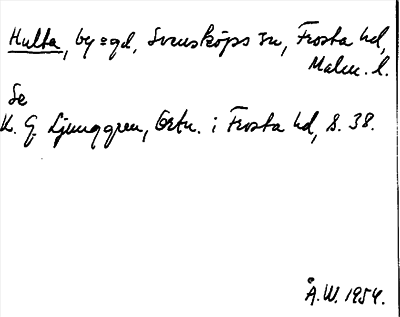 Hulta, by=gd, Svensköps sn, Frosta hd,
Malm. l.
Se
K. G. Ljunggren, Ortn. i Frosta hd, s. 38.
Å.W. 1954.